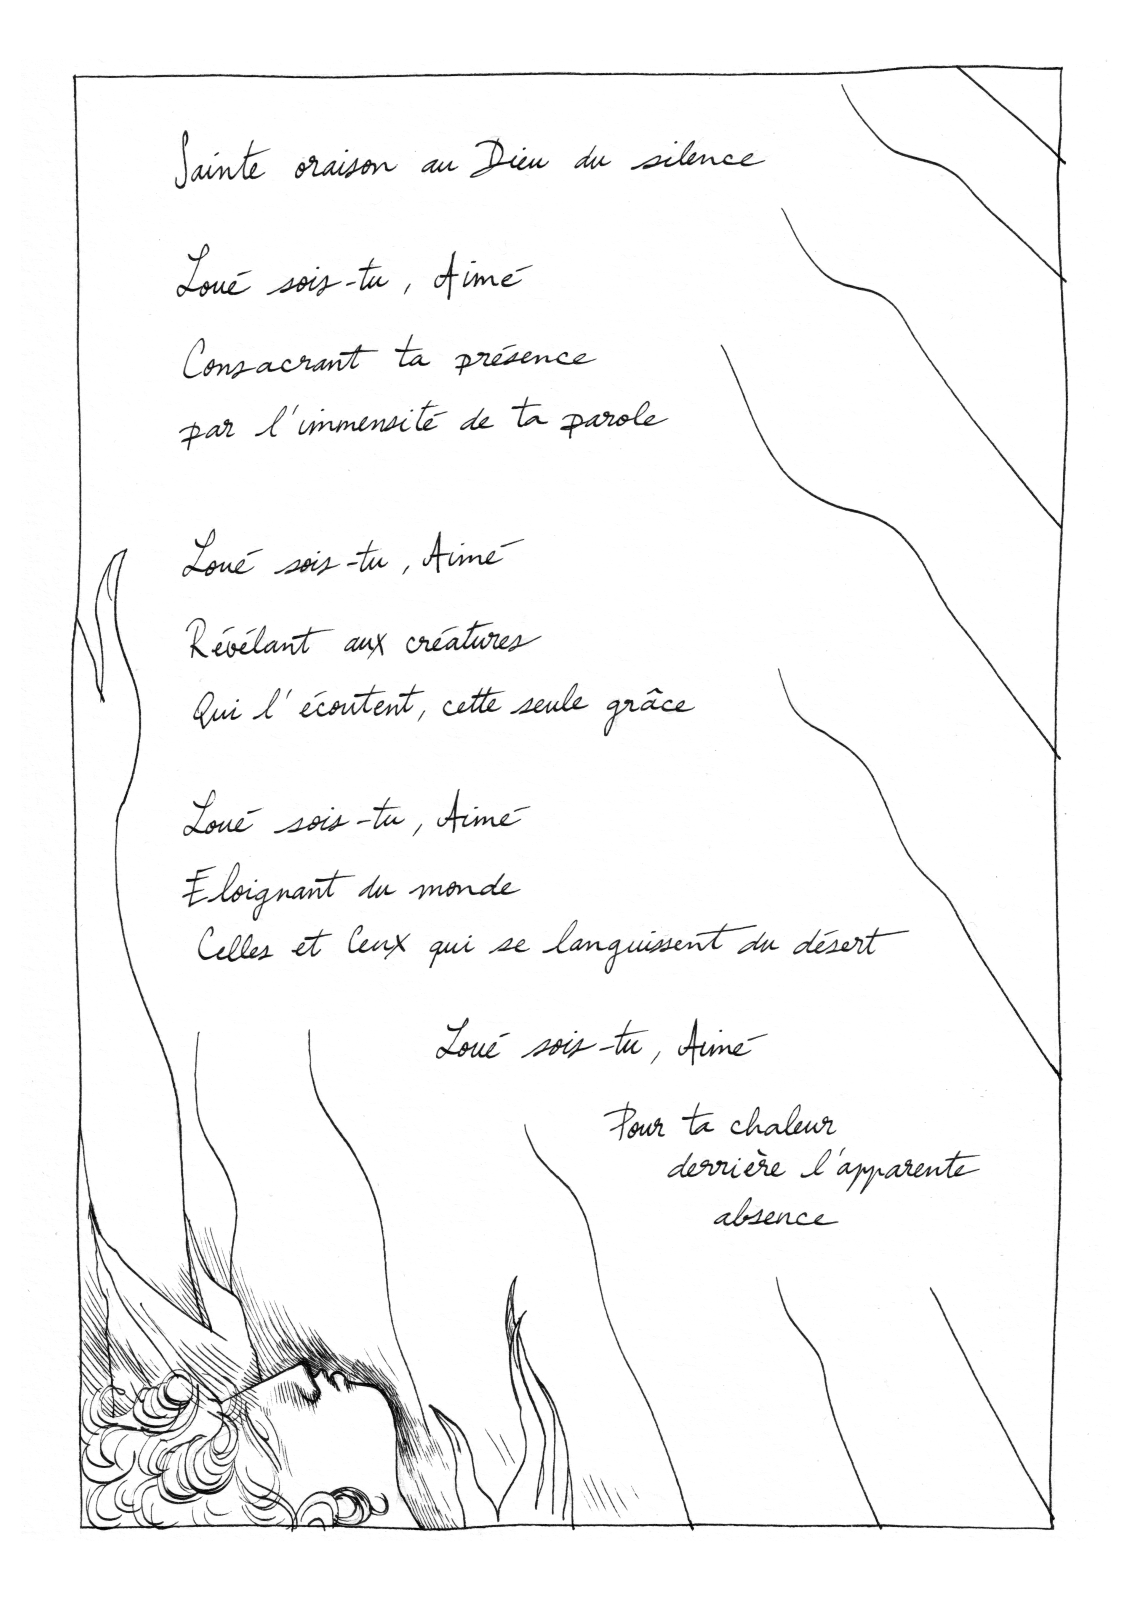 Sainte oraison au Dieu du silence
Loué sois-tu, Aimé
Consacrant ta présence
par l'immensité de ta parole
Loué sois-tu, Aimé
Révélant aux créatures
Qui l'écoutent, cette seule grâce
Loué sois-tu, Aimé
Eloignant du monde
Celles et Ceux qui se languissent du désert
Loué sois-tu, Aimé
Pour ta chaleur
derrière l'apparente
absence